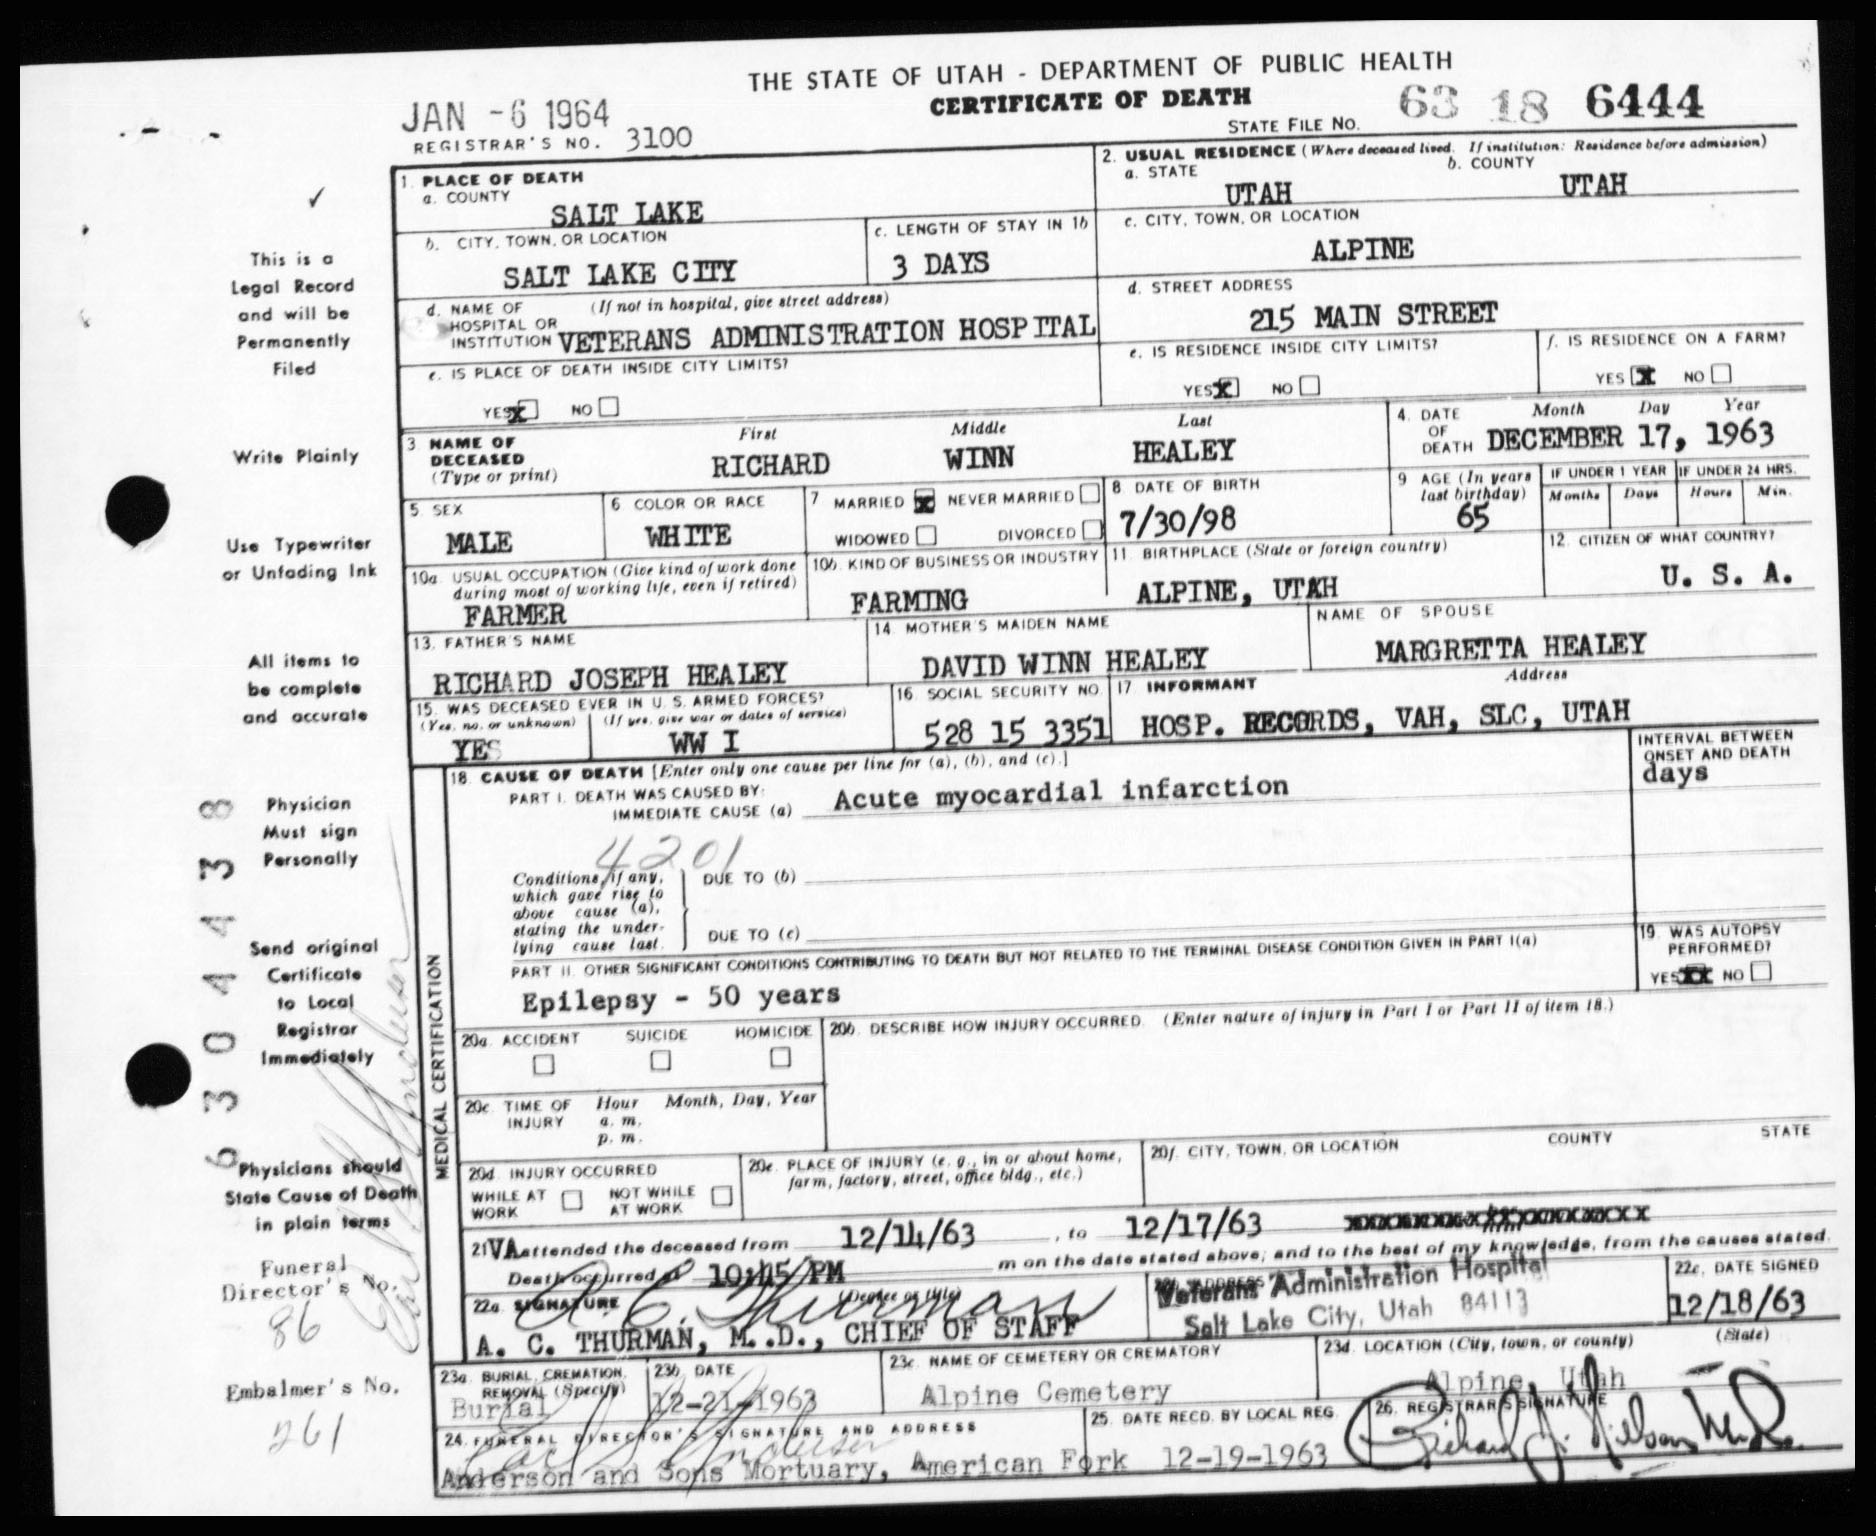 THE STATE OF UTAH - DEPARTMENT OF PUBLIC HEALTH
CERTIFICATE OF DEATH
JAN -6 1964
REGISTRAR'S NO. 3100
STATE FILE NO. 63 18 6444
1. PLACE OF DEATH
a. COUNTY
SALT LAKE
2. USUAL RESIDENCE (Where deceased lived. If institution: Residence before admission)
a. STATE b. COUNTY
UTAH UTAH
b. CITY, TOWN, OR LOCATION
SALT LAKE CITY
c. LENGTH OF STAY IN 1b
3 DAYS
c. CITY, TOWN, OR LOCATION
ALPINE
d. NAME OF HOSPITAL OR INSTITUTION (If not in hospital, give street address)
VETERANS ADMINISTRATION HOSPITAL
d. STREET ADDRESS
215 MAIN STREET
e. IS PLACE OF DEATH INSIDE CITY LIMITS?
YES X NO
e. IS RESIDENCE INSIDE CITY LIMITS?
YES X NO
f. IS RESIDENCE ON A FARM?
YES X NO
3 NAME OF DECEASED (Type or print)
First Middle Last
RICHARD WINN HEALEY
4. DATE OF DEATH
Month Day Year
DECEMBER 17, 1963
5. SEX
MALE
6 COLOR OR RACE
WHITE
7 MARRIED X NEVER MARRIED
WIDOWED DIVORCED
8 DATE OF BIRTH
7/30/98
9 AGE (In years last birthday)
65
IF UNDER 1 YEAR
Months Days
IF UNDER 24 HRS.
Hours Min.
10a. USUAL OCCUPATION (Give kind of work done during most of working life, even if retired)
FARMER
10b. KIND OF BUSINESS OR INDUSTRY
FARMING
11. BIRTHPLACE (State or foreign country)
ALPINE, UTAH
12. CITIZEN OF WHAT COUNTRY?
U. S. A.
13. FATHER'S NAME
RICHARD JOSEPH HEALEY
14. MOTHER'S MAIDEN NAME
DAVID WINN HEALEY
NAME OF SPOUSE
MARGRETTA HEALEY
15. WAS DECEASED EVER IN U. S. ARMED FORCES?
(Yes, no, or unknown) (If yes, give war or dates of service)
YES WW I
16. SOCIAL SECURITY NO.
528 15 3351
17 INFORMANT Address
HOSP. RECORDS, VAH, SLC, UTAH
18. CAUSE OF DEATH [Enter only one cause per line for (a), (b), and (c).]
INTERVAL BETWEEN ONSET AND DEATH
PART I. DEATH WAS CAUSED BY:
IMMEDIATE CAUSE (a) Acute myocardial infarction
days
4201
Conditions, if any, which gave rise to above cause (a), stating the underlying cause last.
DUE TO (b)
DUE TO (c)
PART II. OTHER SIGNIFICANT CONDITIONS CONTRIBUTING TO DEATH BUT NOT RELATED TO THE TERMINAL DISEASE CONDITION GIVEN IN PART I(a)
Epilepsy - 50 years
19. WAS AUTOPSY PERFORMED?
YES XX NO
MEDICAL CERTIFICATION
20a. ACCIDENT SUICIDE HOMICIDE
20b. DESCRIBE HOW INJURY OCCURRED. (Enter nature of injury in Part I or Part II of item 18.)
20c. TIME OF INJURY Hour Month, Day, Year
a. m.
p. m.
20d. INJURY OCCURRED
WHILE AT WORK NOT WHILE AT WORK
20e. PLACE OF INJURY (e. g., in or about home, farm, factory, street, office bldg., etc.)
20f. CITY, TOWN, OR LOCATION COUNTY STATE
21 VA attended the deceased from 12/14/63, to 12/17/63
Death occurred at 10:45 PM m on the date stated above; and to the best of my knowledge, from the causes stated.
22a. SIGNATURE (Degree or title)
A. C. Thurman
A. C. THURMAN, M..D., CHIEF OF STAFF
22b. ADDRESS
Veterans Administration Hospital
Salt Lake City, Utah 84113
22c. DATE SIGNED
12/18/63
23a. BURIAL, CREMATION, REMOVAL (Specify)
Burial
23b. DATE
12-21-1963
23c. NAME OF CEMETERY OR CREMATORY
Alpine Cemetery
23d. LOCATION (City, town, or county) (State)
Alpine, Utah
24. FUNERAL DIRECTOR'S SIGNATURE AND ADDRESS
Anderson and Sons Mortuary, American Fork
25. DATE RECD. BY LOCAL REG.
12-19-1963
26. REGISTRAR'S SIGNATURE
Richard J. Nelson M.D.
This is a
Legal Record
and will be
Permanently
Filed
Write Plainly
Use Typewriter
or Unfading Ink
All items to
be complete
and accurate
Physician
Must sign
Personally
Send original
Certificate
to Local
Registrar
Immediately
Physicians should
State Cause of Death
in plain terms
Funeral
Director's No.
86
Embalmer's No.
261
6304438